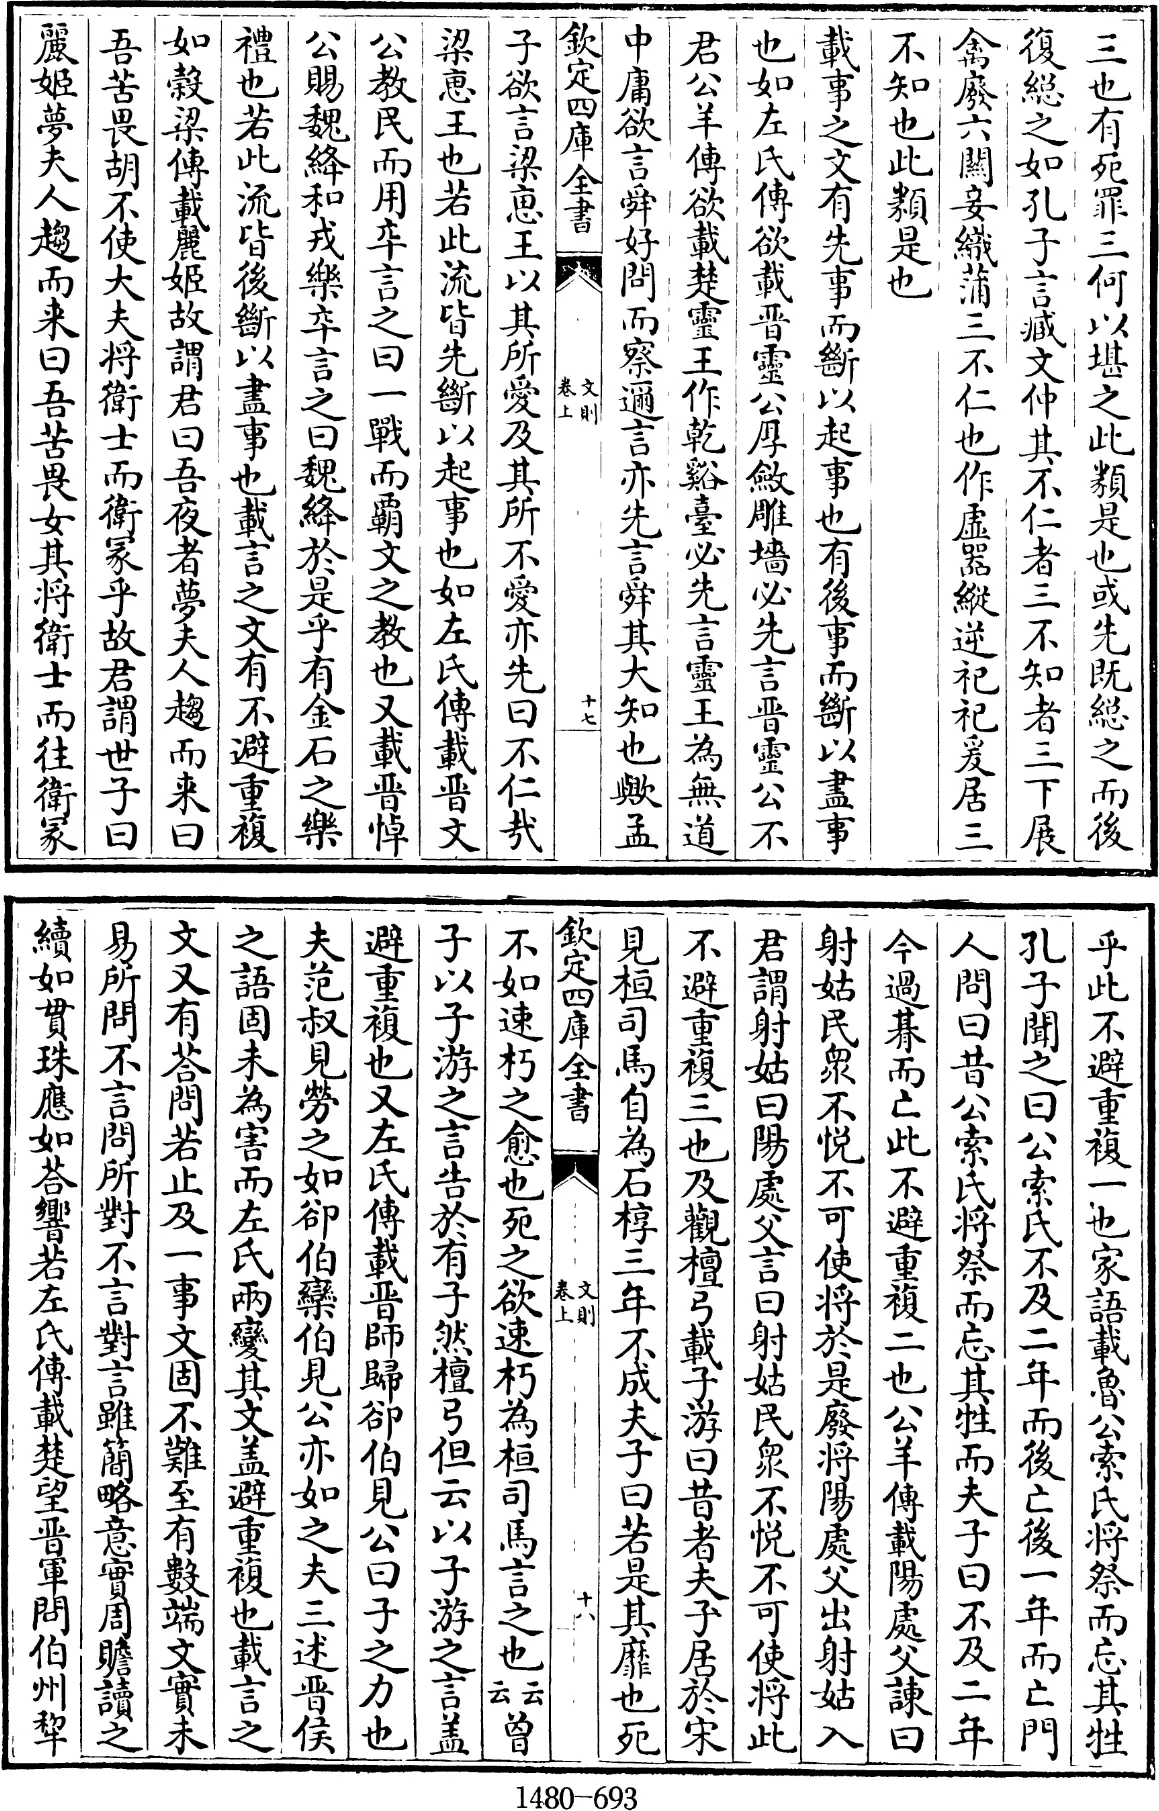 三也有死罪三何以堪之此類是也或先既總之而後
復總之如孔子言臧文仲其不仁者三不知者三下展
禽廢六關妾織蒲三不仁也作虛器縱逆祀祀爰居三
不知也此類是也
載事之文有先事而斷以起事也有後事而斷以盡事
也如左氏傳欲載晉靈公厚斂雕墻必先言晉靈公不
君公羊傳欲載楚靈王作乾谿臺必先言靈王為無道
中庸欲言舜好問而察邇言亦先言舜其大知也歟孟
欽定四庫全書
文則
卷上
十七
子欲言梁惠王以其所愛及其所不愛亦先曰不仁哉
梁惠王也若此流皆先斷以起事也如左氏傳載晉文
公教民而用卒言之曰一戰而霸文之教也又載晉悼
公賜魏絳和戎樂卒言之曰魏絳於是乎有金石之樂
禮也若此流皆後斷以盡事也載言之文有不避重複
如穀梁傳載麗姬故謂君曰吾夜者夢夫人趨而来曰
吾苦畏胡不使大夫将衛士而衛冢乎故君謂世子曰
麗姬夢夫人趨而来曰吾苦畏女其将衛士而往衛冢
乎此不避重複一也家語載魯公索氏将祭而忘其牲
孔子聞之曰公索氏不及二年而後亡後一年而亡門
人問曰昔公索氏将祭而忘其牲而夫子曰不及二年
今過朞而亡此不避重複二也公羊傳載陽處父諫曰
射姑民衆不悦不可使将於是廢将陽處父出射姑入
君謂射姑曰陽處父言曰射姑民衆不悦不可使将此
不避重複三也及觀檀弓載子游曰昔者夫子居於宋
見桓司馬自為石椁三年不成夫子曰若是其靡也死
欽定四庫全書
文則
卷上
十八
不如速朽之愈也死之欲速朽為桓司馬言之也云云曾
子以子游之言告於有子然檀弓但云以子游之言盖
避重複也又左氏傳載晉師歸郤伯見公曰子之力也
夫范叔見勞之如郤伯欒伯見公亦如之夫三述晉侯
之語固未為害而左氏兩變其文盖避重複也載言之
文又有荅問若止及一事文固不難至有數端文實未
易所問不言問所對不言對言雖簡略意實周贍讀之
續如貫珠應如荅響若左氏傳載楚望晉軍問伯州犂
1480-693